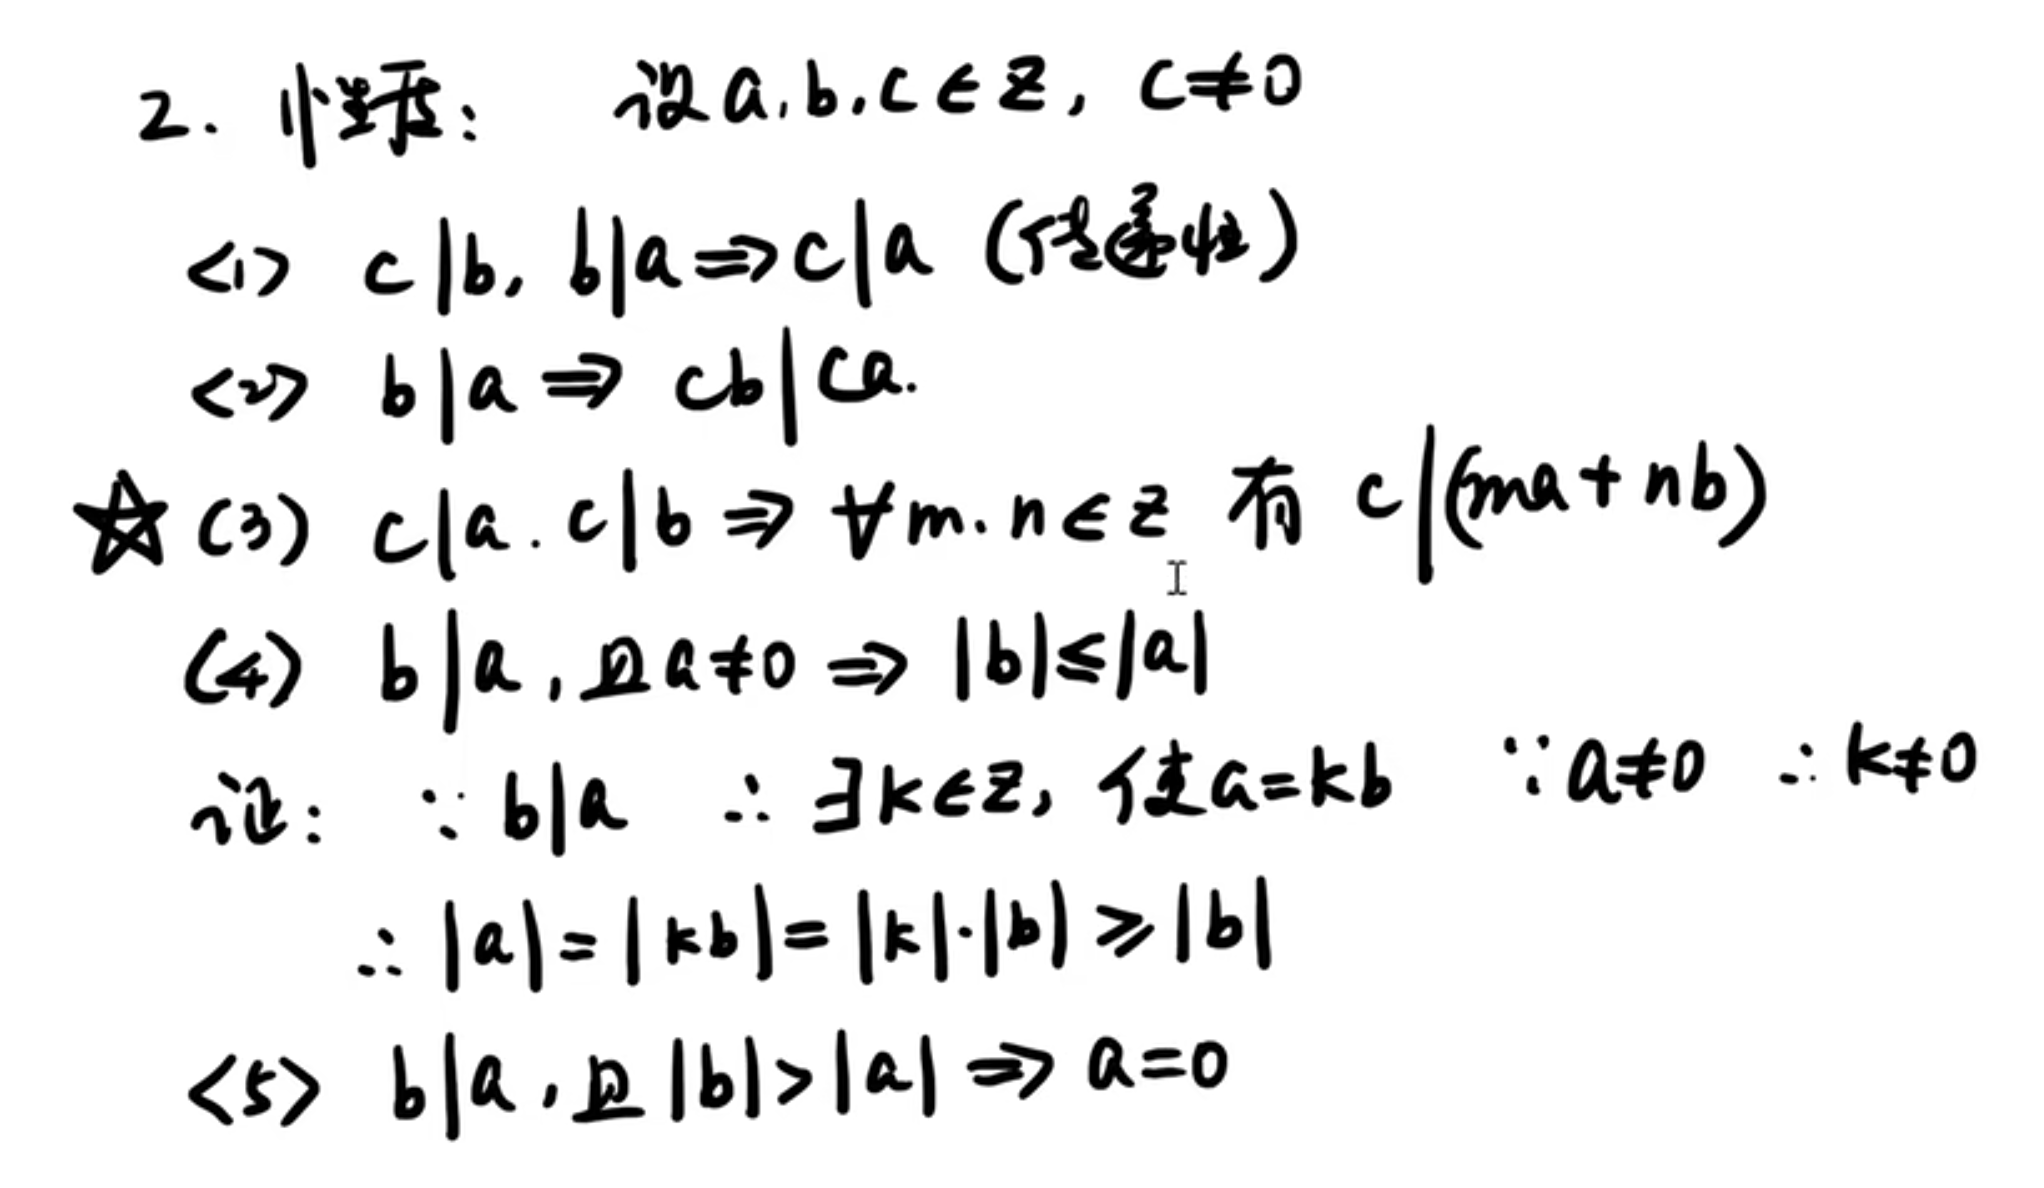 2. 性质: 设a,b,c∈Z, c≠0
<1> c|b, b|a⇒c|a (传递性)
<2> b|a⇒cb|ca.
☆(3) c|a.c|b⇒∀m.n∈Z 有 c|(ma+nb)
(4) b|a,且a≠0⇒|b|≤|a|
证: ∵b|a ∴∃k∈Z, 使a=kb ∵a≠0 ∴k≠0
∴|a|=|kb|=|k|·|b|≥|b|
<5> b|a,且|b|>|a|⇒a=0